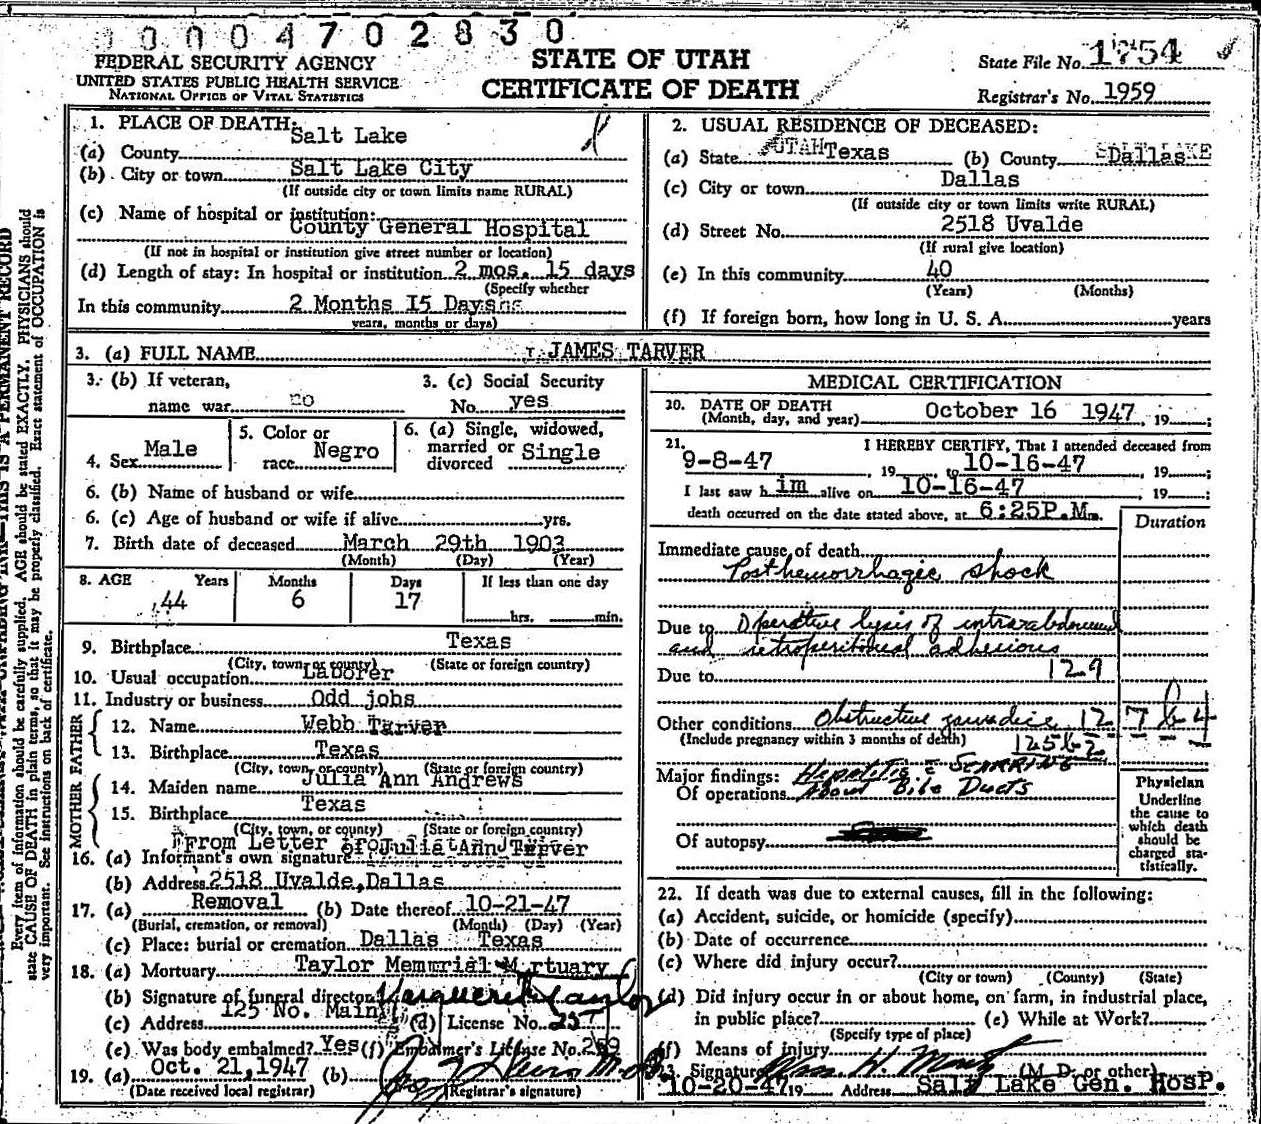 0004702830
FEDERAL SECURITY AGENCY
UNITED STATES PUBLIC HEALTH SERVICE
NATIONAL OFFICE OF VITAL STATISTICS
STATE OF UTAH
CERTIFICATE OF DEATH
State File No. 1754
Registrar's No. 1959
1. PLACE OF DEATH:
(a) County Salt Lake
(b) City or town Salt Lake City
(If outside city or town limits name RURAL)
(c) Name of hospital or institution:
County General Hospital
(If not in hospital or institution give street number or location)
(d) Length of stay: In hospital or institution 2 mos. 15 days
(Specify whether
In this community 2 Months I5 Days
years, months or days)
2. USUAL RESIDENCE OF DECEASED:
(a) State UTAH Texas (b) County Dallas
(c) City or town Dallas
(If outside city or town limits write RURAL)
(d) Street No. 2518 Uvalde
(If rural give location)
(e) In this community 40
(Years) (Months)
(f) If foreign born, how long in U. S. A. years
3. (a) FULL NAME JAMES TARVER
3. (b) If veteran,
name war no
3. (c) Social Security
No. yes
4. Sex Male
5. Color or
race Negro
6. (a) Single, widowed,
married or
divorced Single
6. (b) Name of husband or wife
6. (c) Age of husband or wife if alive yrs.
7. Birth date of deceased March 29th 1903
(Month) (Day) (Year)
8. AGE Years Months Days If less than one day
44 6 17 hrs. min.
9. Birthplace Texas
(City, town, or county) (State or foreign country)
10. Usual occupation Laborer
11. Industry or business Odd jobs
FATHER
12. Name Webb Tarver
13. Birthplace Texas
(City, town, or county) (State or foreign country)
MOTHER
14. Maiden name Julia Ann Andrews
15. Birthplace Texas
(City, town, or county) (State or foreign country)
From Letter of Julia Ann Tarver
16. (a) Informant's own signature
(b) Address 2518 Uvalde, Dallas
17. (a) Removal (b) Date thereof 10-21-47
(Burial, cremation, or removal) (Month) (Day) (Year)
(c) Place: burial or cremation Dallas Texas
18. (a) Mortuary Taylor Memurial Mortuary
(b) Signature of funeral director
(c) Address 125 No. Main (d) License No. 257
(e) Was body embalmed? Yes (f) Embalmer's License No. 259
19. (a) Oct. 21, 1947 (b)
(Date received local registrar) (Registrar's signature)
MEDICAL CERTIFICATION
20. DATE OF DEATH October 16 1947, 19 ;
(Month, day, and year)
21. I HEREBY CERTIFY, That I attended deceased from
9-8-47, 19 to 10-16-47, 19 ;
I last saw him alive on 10-16-47, 19 ;
death occurred on the date stated above, at 6:25P.M.
Duration
Immediate cause of death
Posthemorrhagic shock
Due to Operative lysis of intraabdominal
and retroperitoneal adhesions
Due to 129
Other conditions Obstructive jaundice
(Include pregnancy within 3 months of death)
Major findings: Hepatitis c̄ SCARRING
Of operations About Bile Ducts
Of autopsy
Physician
Underline
the cause to
which death
should be
charged sta-
tistically.
22. If death was due to external causes, fill in the following:
(a) Accident, suicide, or homicide (specify)
(b) Date of occurrence
(c) Where did injury occur?
(City or town) (County) (State)
(d) Did injury occur in or about home, on farm, in industrial place,
in public place? (e) While at Work?
(Specify type of place)
(f) Means of injury
23. Signature (M. D. or other)
10-20-47 19 Address Salt Lake Gen. Hosp.
Every item of information should be carefully supplied. AGE should be stated EXACTLY. PHYSICIANS should
state CAUSE OF DEATH in plain terms, so that it may be properly classified. Exact statement of OCCUPATION is
very important. See instructions on back of certificate.